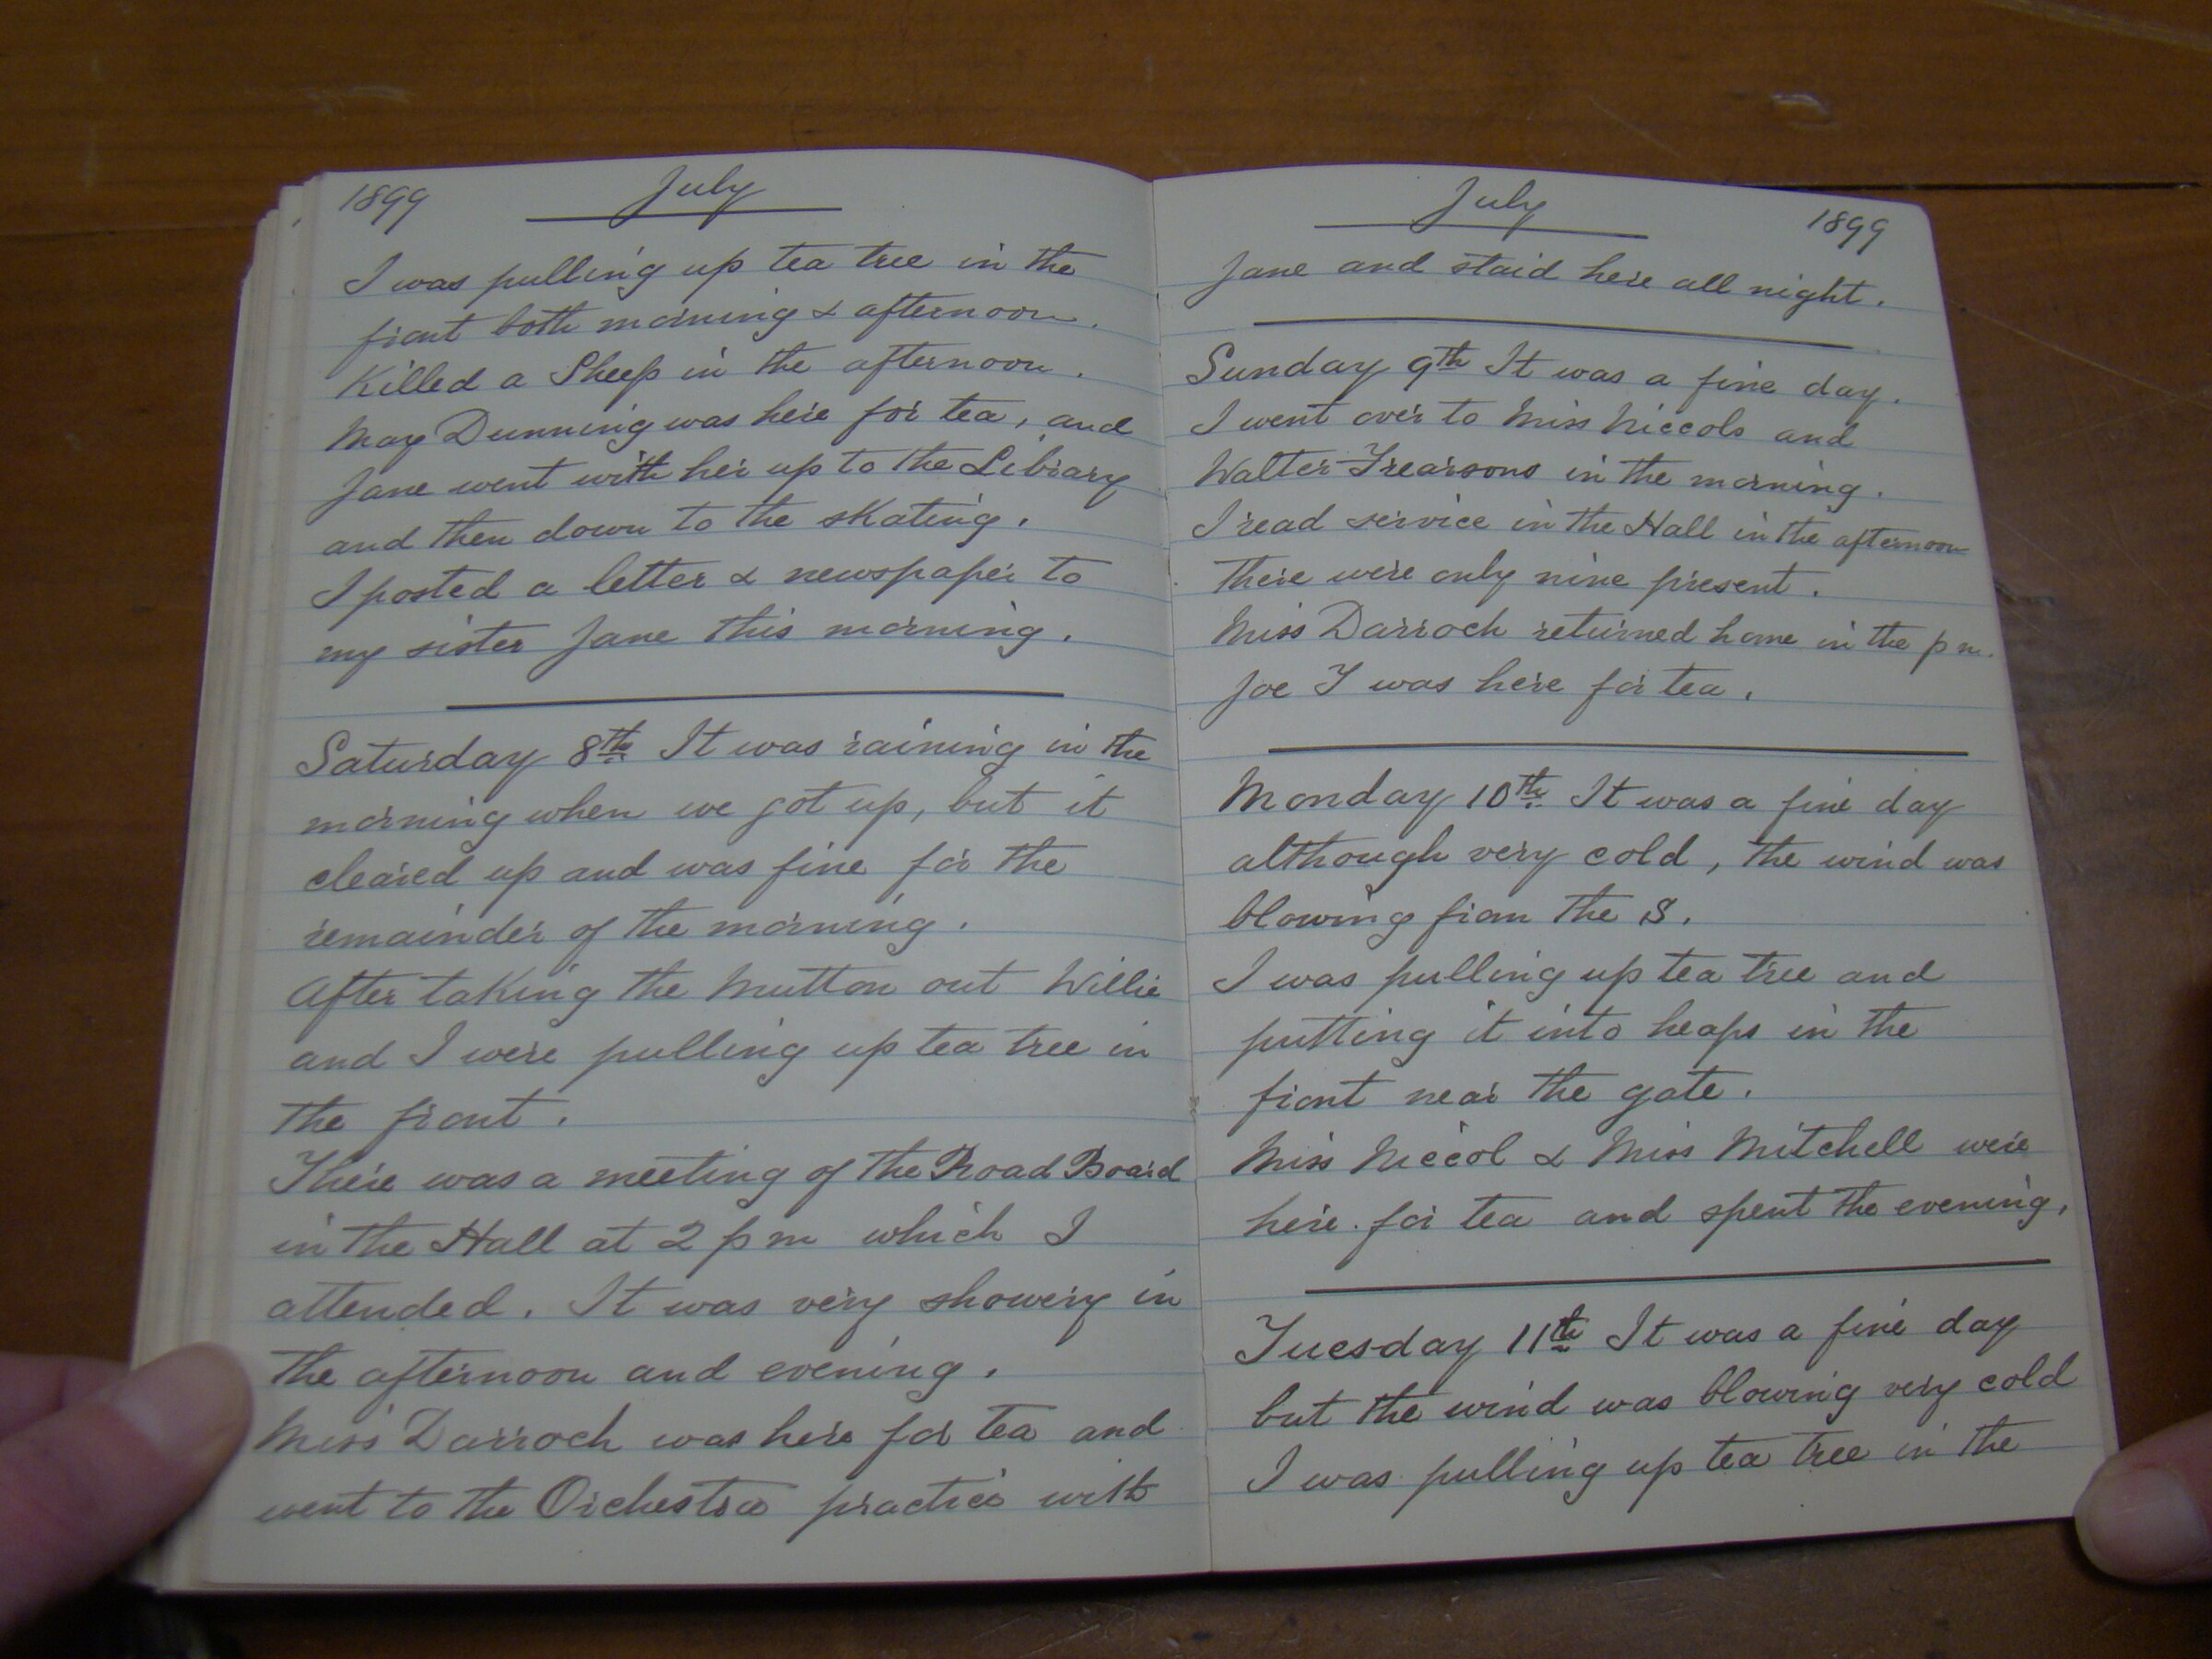 1899 July
I was pulling up tea tree in the
front both morning & afternoon.
Killed a Sheep in the afternoon.
May Dunning was here for tea, and
Jane went with her up to the Library
and then down to the skating.
I posted a letter & newspaper to
my sister Jane this morning.
Saturday 8th It was raining in the
morning when we got up, but it
cleared up and was fine for the
remainder of the morning.
After taking the Mutton out Willie
and I were pulling up tea tree in
the front.
There was a meeting of the Road Board
in the Hall at 2 p m which I
attended. It was very showery in
the afternoon and evening.
Miss Darroch was here for tea and
went to the Orchestra practice with
July 1899
Jane and staid here all night.
Sunday 9th It was a fine day.
I went over to Miss Niccols and
Walter Frearsons in the morning.
I read service in the Hall in the afternoon
There were only nine present.
Miss Darroch returned home in the p m.
Joe F was here for tea.
Monday 10th It was a fine day
although very cold, the wind was
blowing from the S.
I was pulling up tea tree and
putting it into heaps in the
front near the gate.
Miss Niccol & Miss Mitchell were
here for tea and spent the evening.
Tuesday 11th It was a fine day
but the wind was blowing very cold
I was pulling up tea tree in the